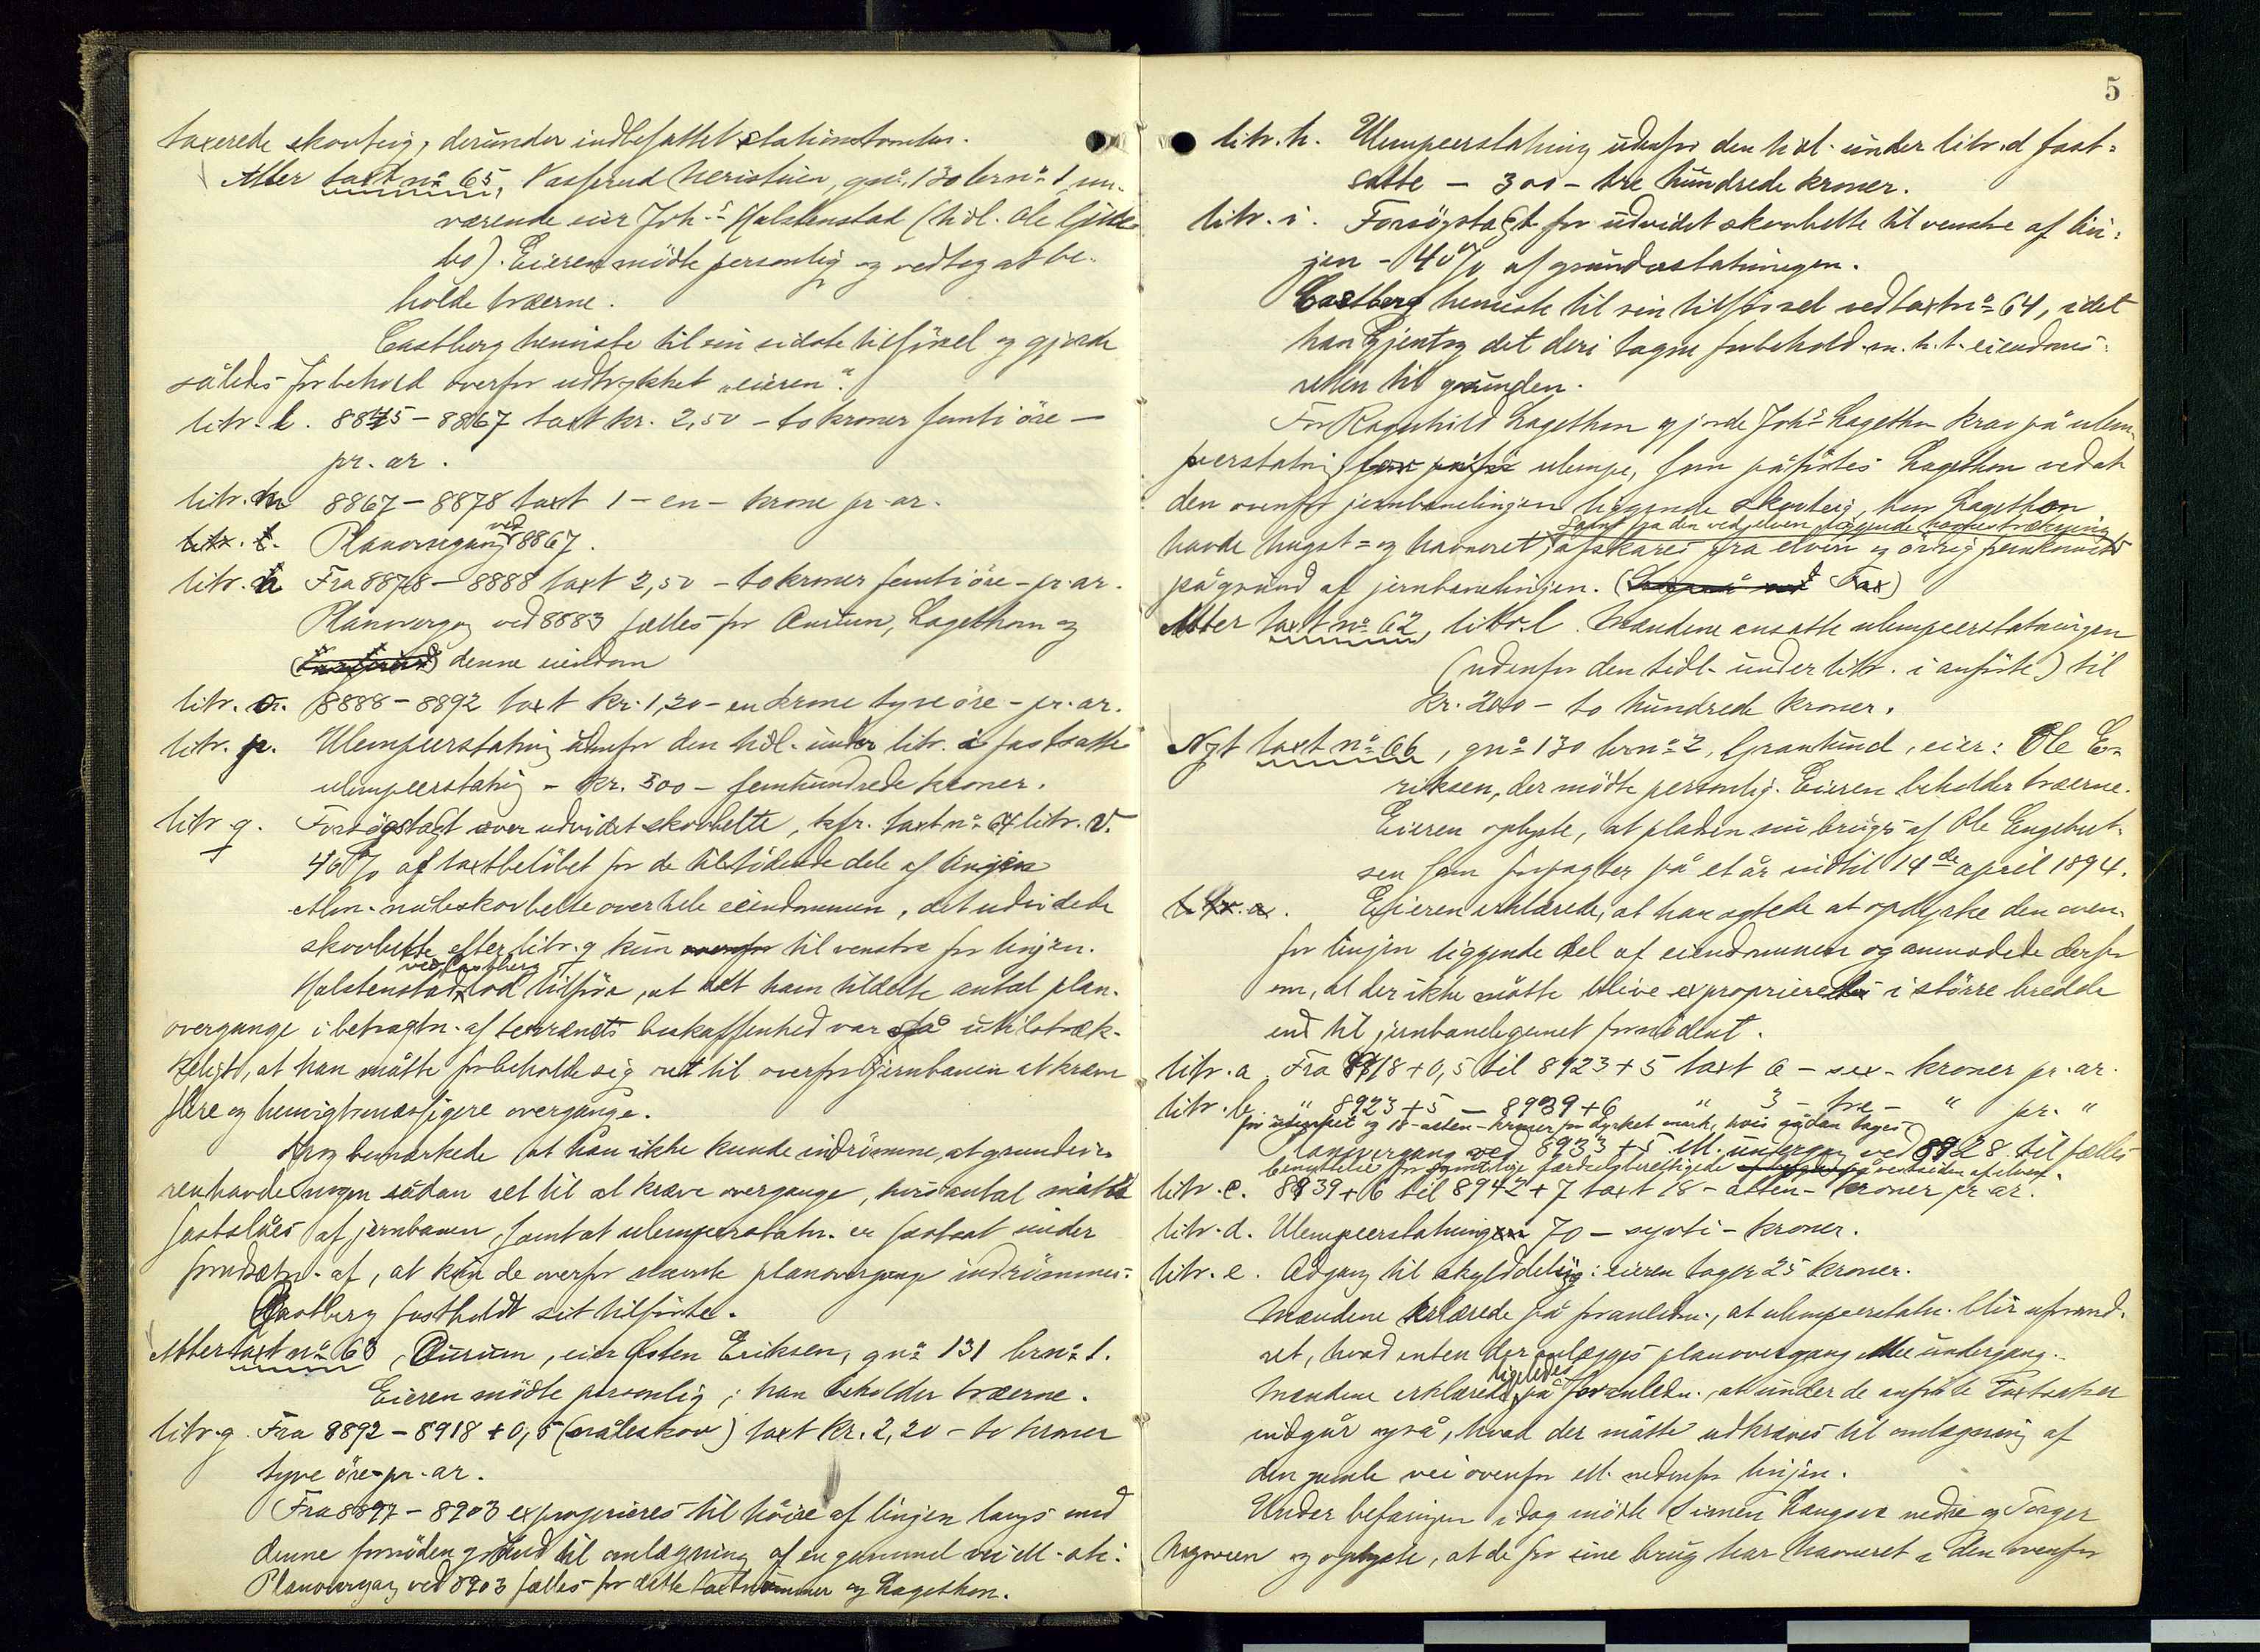 taxerede skovteig, derunder indbefattet stationstomten.
Atter taxt no 65, Vasserud gno. 130 brno 1 nu-
værende eier Joh.s Halstenstad (tidl. Ole
bo). Eieren mödte personlig og vedtog at be-
holde træerne.
Castberg henviste til sin sidste tilförsel og gjorde
således forbehold overfor udtrykket "eieren".
litr. l. 8845 - 8867 taxt kr. 2,50 - to kroner femti öre -
pr. ar.
litr. m 8867 - 8878 taxt 1 - en - krone pr. ar.
litr. t. Planovergang ved 8867.
litr. n Fra 8878 - 8888 taxt 2,50 - to kroner femti öre - pr. ar.
Planovergang ved 8883 fælles for Aurum, Lagethon og
denne eiendom
litr. o. 8888 - 8892 taxt kr. 1,20 - en krone tyve öre - pr. ar.
litr. p. Ulempeerstatning udenfor den tidl. under litr. i fastsatte
ulempeerstatning - kr. 500 - femhundrede kroner.
litr. q. Forsögstaxt over udvidet skovbelte, kfr. taxt no 64 litr. v.
40 % af taxtbelöbet for de tilstödende dele af linjen
Alm. naleskovbelte over hele eiendommen, det udvidede
skovbelte efter litr. q kun ovenfor til venstre for linjen.
Halstenstad ved Castberg lod tilföre, at det ham tildelte antal plan-
overgange i betragtn. af terrænets beskaffenhed var så utilstræk-
keligt, at han måtte forbeholde sig ret til overfor jernbanen at kræve
flere og hensigtsmæssigere overgange.
bemærkede at han ikke kunde indrömme, at grundeie-
ren havde nogen sådan ret til at kræve overgange, hvis antal måtte
fastslåes af jernbanen, samt at ulempeerstatn. er fastsat under
forudsætn. af, at kun de overfor nævnte planovergange indrömmes.
Castberg fastholdt sit tilförte.
Atter taxt no 63, Aurum, eier Østen Eriksen, gno 131 brno 1.
Eieren mödte personlig; han beholder træerne.
litr. q Fra 8892 - 8918 + 0,5 (nåleskov) taxt kr. 2,20 - to kroner
tyve öre - pr. ar.
Fra 8897 - 8903 exproprieres til höire af linjen langs med
denne fornöden grund til omlægning af en gammel vei ell. sti.
Planovergang ved 8903 fælles for dette taxtnummer og Lagethon.
5
litr. h. Ulempeerstatning udenfor den tidl. under litr. d fast-
satte - 300 - tre hundrede kroner.
litr. i. Forsögstaxt for udvidet skovbelte til venstre af lin-
jen - 40 % af grunderstatningen.
Castberg henviste til sin tilförsel ved taxt no 64, idet
han gjentog det deri tagne forbehold m. h. t. eiendoms-
retten til grunden.
For Ragnhild Lagethon gjorde Joh.s Lagethon krav på ulem-
peerstatning for ulempe, som påförtes Lagethon ved at
den ovenfor jernbanelinjen liggende skovteig, hvor Lagethon
samt fra den ved elven liggende havnestrækning
havde hugst- og havneret, afskares fra elven og övrig
på grund af jernbanelinjen.
Atter taxt no 62, litr. l. Mændene ansatte ulempeerstatningen
(udenfor den tidl. under litr. i anförte) til
kr. 200 - to hundrede kroner.
Nyt taxt no 66, gno 130 brno 2, Grantund, eier: Ole E-
riksen, der mödte personlig. Eieren beholder træerne.
Eieren oplyste, at pladsen nu bruges af Ole Engebret-
sen som forpagter på et år indtil 14de april 1894.
litr. a. Eieren erklærede, at han agtede at opdyrke den oven-
for linjen liggende del af eiendommen og anmodede derfor
om, at der ikke måtte blive exproprieret i större bredde
end til jernbanelegemet fornödent.
litr. a Fra 8918 + 0,5 til 8923 + 5 taxt 6 - sex - kroner pr. ar.
litr. b. " 8923 + 5 - 8939 + 6 " 3 - tre - " pr. "
for udyrket og 18 - atten - kroner for dyrket mark, hvis sådan tages
Planovergang ved 8933 + 5 ell. undergang ved 8928 til fælles
benyttelse for samtlige færdselsberettigede på vestsiden af elven.
litr. c. 8939 + 6 til 8942 + 7 taxt 18 - atten - kroner pr. ar.
litr. d. Ulempeerstatningen 70 - sytti - kroner.
litr. e. Adgang til skylddeling: eieren tager 25 kroner.
Mændene erklærede på foranledn., at ulempeerstatn. blir uforand-
ret, hvad enten der anlægges planovergang eller undergang.
Mændene erklærede ligeledes på foranledn., at under de anförte taxtsatser
indgår også, hvad der måtte udkræves til omlægning af
den gamle vei ovenfor ell. nedenfor linjen.
Under befaringen idag mödte Simen nedre og Torger
og oplyste, at de for sine brug har havneret i den ovenfor